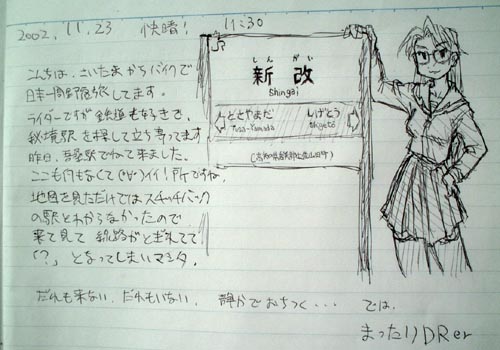 2002.11.23 快晴! 11:30
こんちは、さいたまからバイクで
日本一周野宿旅してます。
ライダーですが鉄道も好きで、
秘境駅を探して立ち寄ってます
昨日、
駅でねて来ました。
ここも何もなくて
イイ!所ですね。
地図を見ただけではスイッチバック
の駅とわからなかったので
来て見て 線路がとぎれてて
「?」となってしまいマシタ。
だれも来ない、だれもいない、静かでおちつく・・・ では、
まったりDRer
しんがい
新改
Shingai
とさやまだ
Tosa-Yamada
しげとう
Shigetō